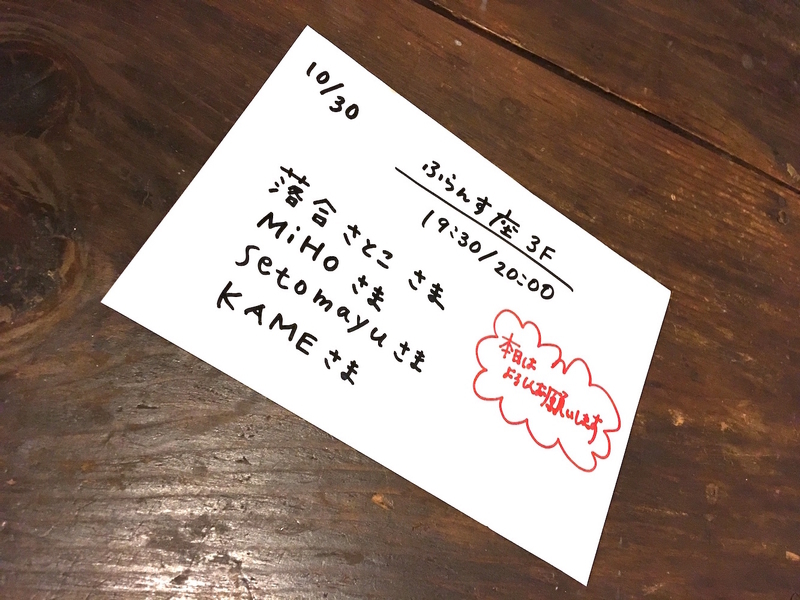 10/30
ふらんす座 3F
19:30/20:00
落合さとこ さま
MiHO さま
setomayu さま
KAME さま
本日は
よろしくお願いします